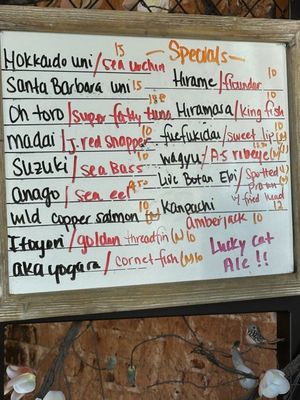 Specials
15
Hokkaido uni/sea urchin
Santa Barbara uni 15
Oh toro/super fatty tuna
madai/J. red snapper 10
Suzuki/sea Bass 10
anago/sea eel
wild copper salmon 10
Itoyori/golden threadfin (N) 10
aka yagara/cornet fish (N) 10
Hirame/flounder 10
Hiramasa/king fish 10
fuefukidai/sweet lip 10
wagyu/A5 ribeye
Live Botan Ebi/spotted prawn
w/ fried head 12
Kanpachi
amberjack 10
Lucky Cat
Ale!!